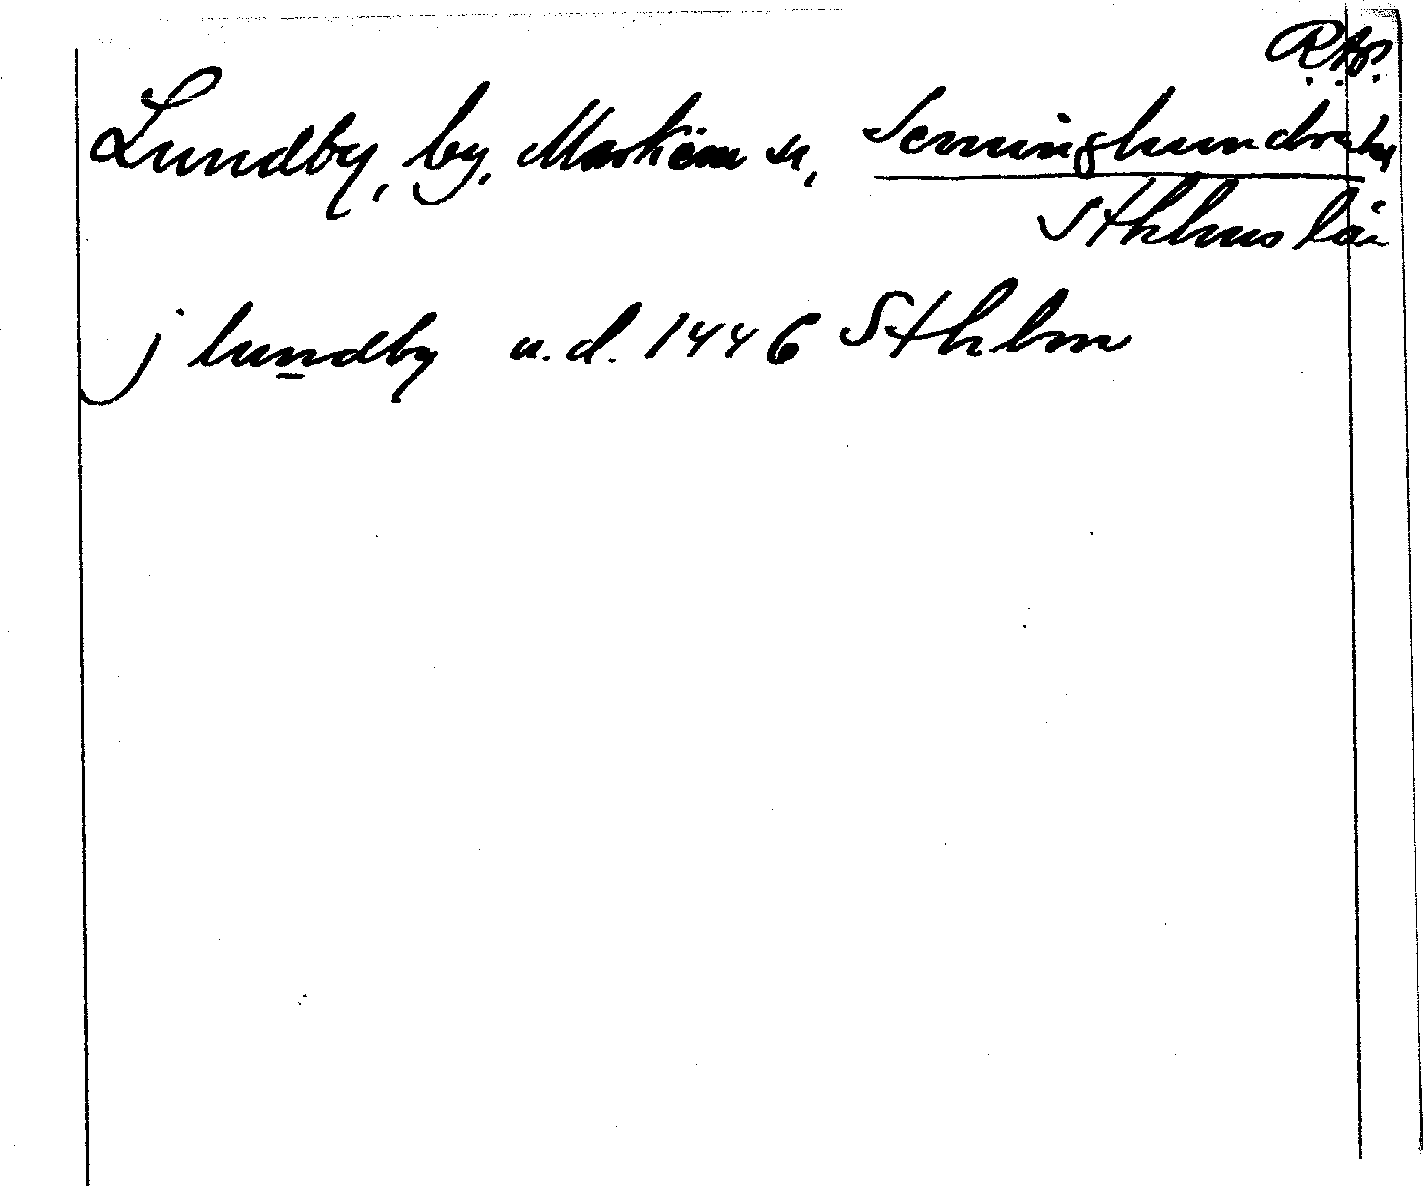 R.Ap.
Lundby, by, Markim sn, Seminghundra hd
Sthlms län
j lundby u.d. 1446 Sthlm